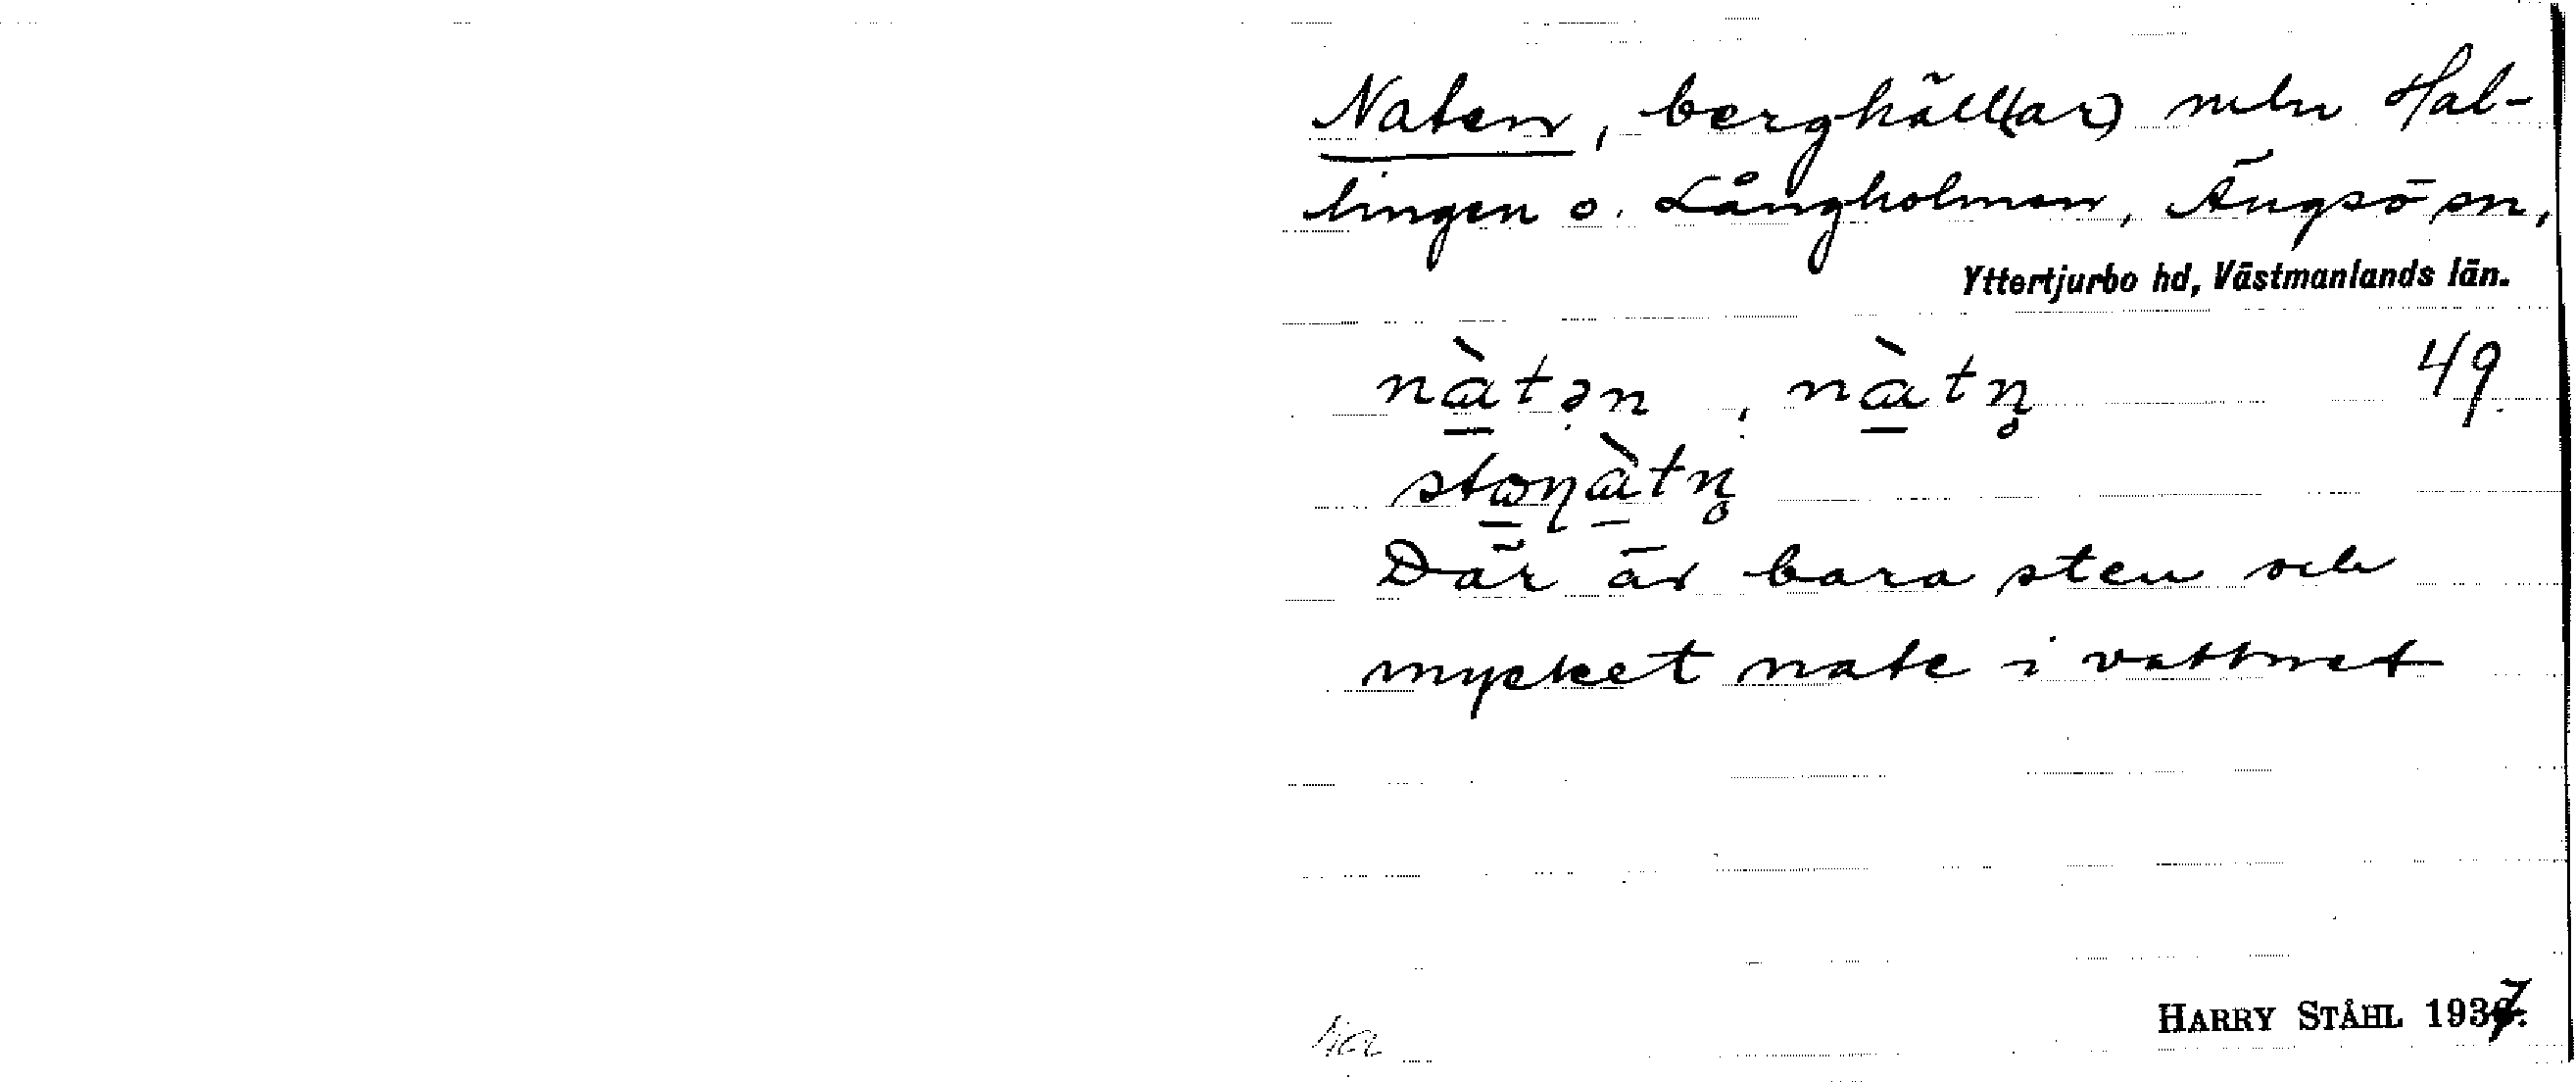 Naten, berghäll(ar) mln Hal-
lingen o. Långholmen, Ängsö sn,
Yttertjurbo hd, Västmanlands län.
nàtən, nàtn̥ 49.
Där är bara sten och
mycket nate i vattnet
HARRY STÅHL 1937.